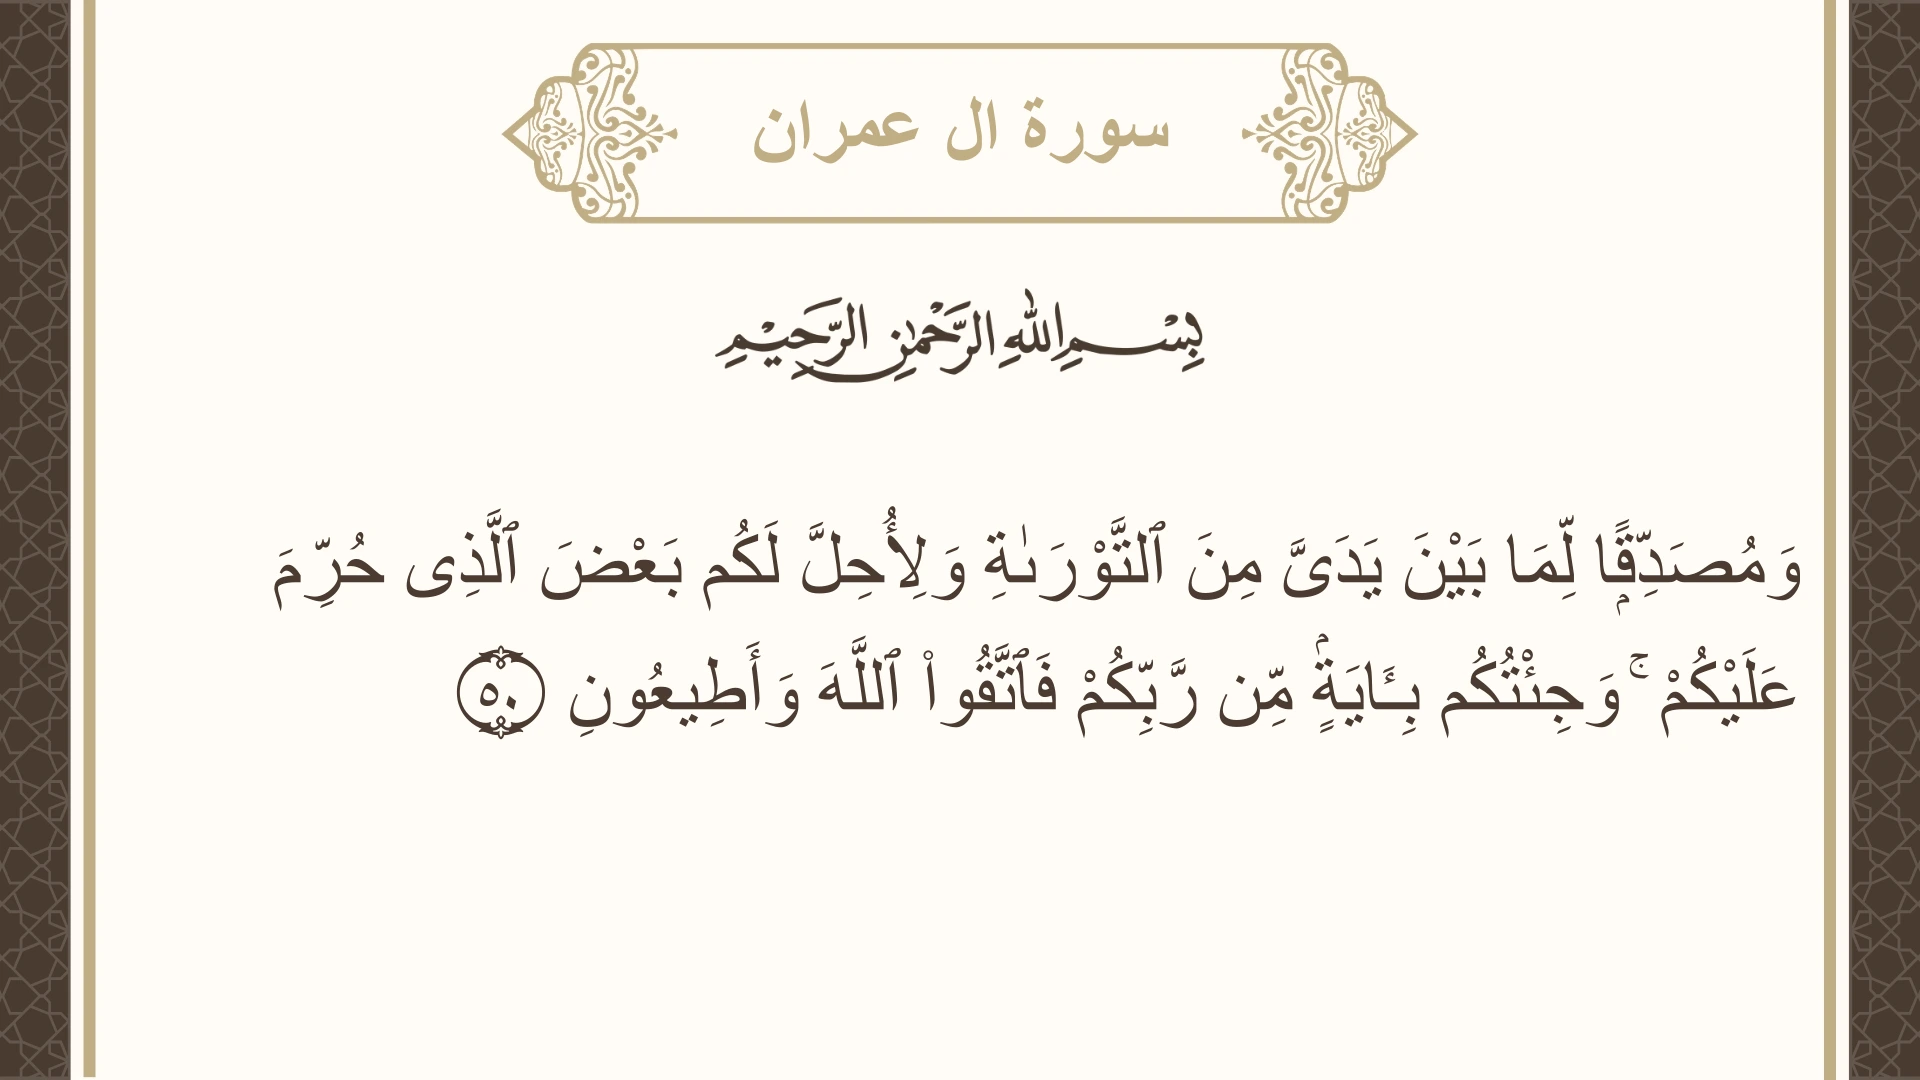 سورة ال عمران
بِسْمِ اللهِ الرَّحْمٰنِ الرَّحِيْمِ
وَمُصَدِّقًۭا لِّمَا بَيْنَ يَدَىَّ مِنَ ٱلتَّوْرَىٰةِ وَلِأُحِلَّ لَكُم بَعْضَ ٱلَّذِى حُرِّمَ
عَلَيْكُمْ ۚ وَجِئْتُكُم بِـَٔايَةٍۢ مِّن رَّبِّكُمْ فَٱتَّقُوا۟ ٱللَّهَ وَأَطِيعُونِ ٥٠